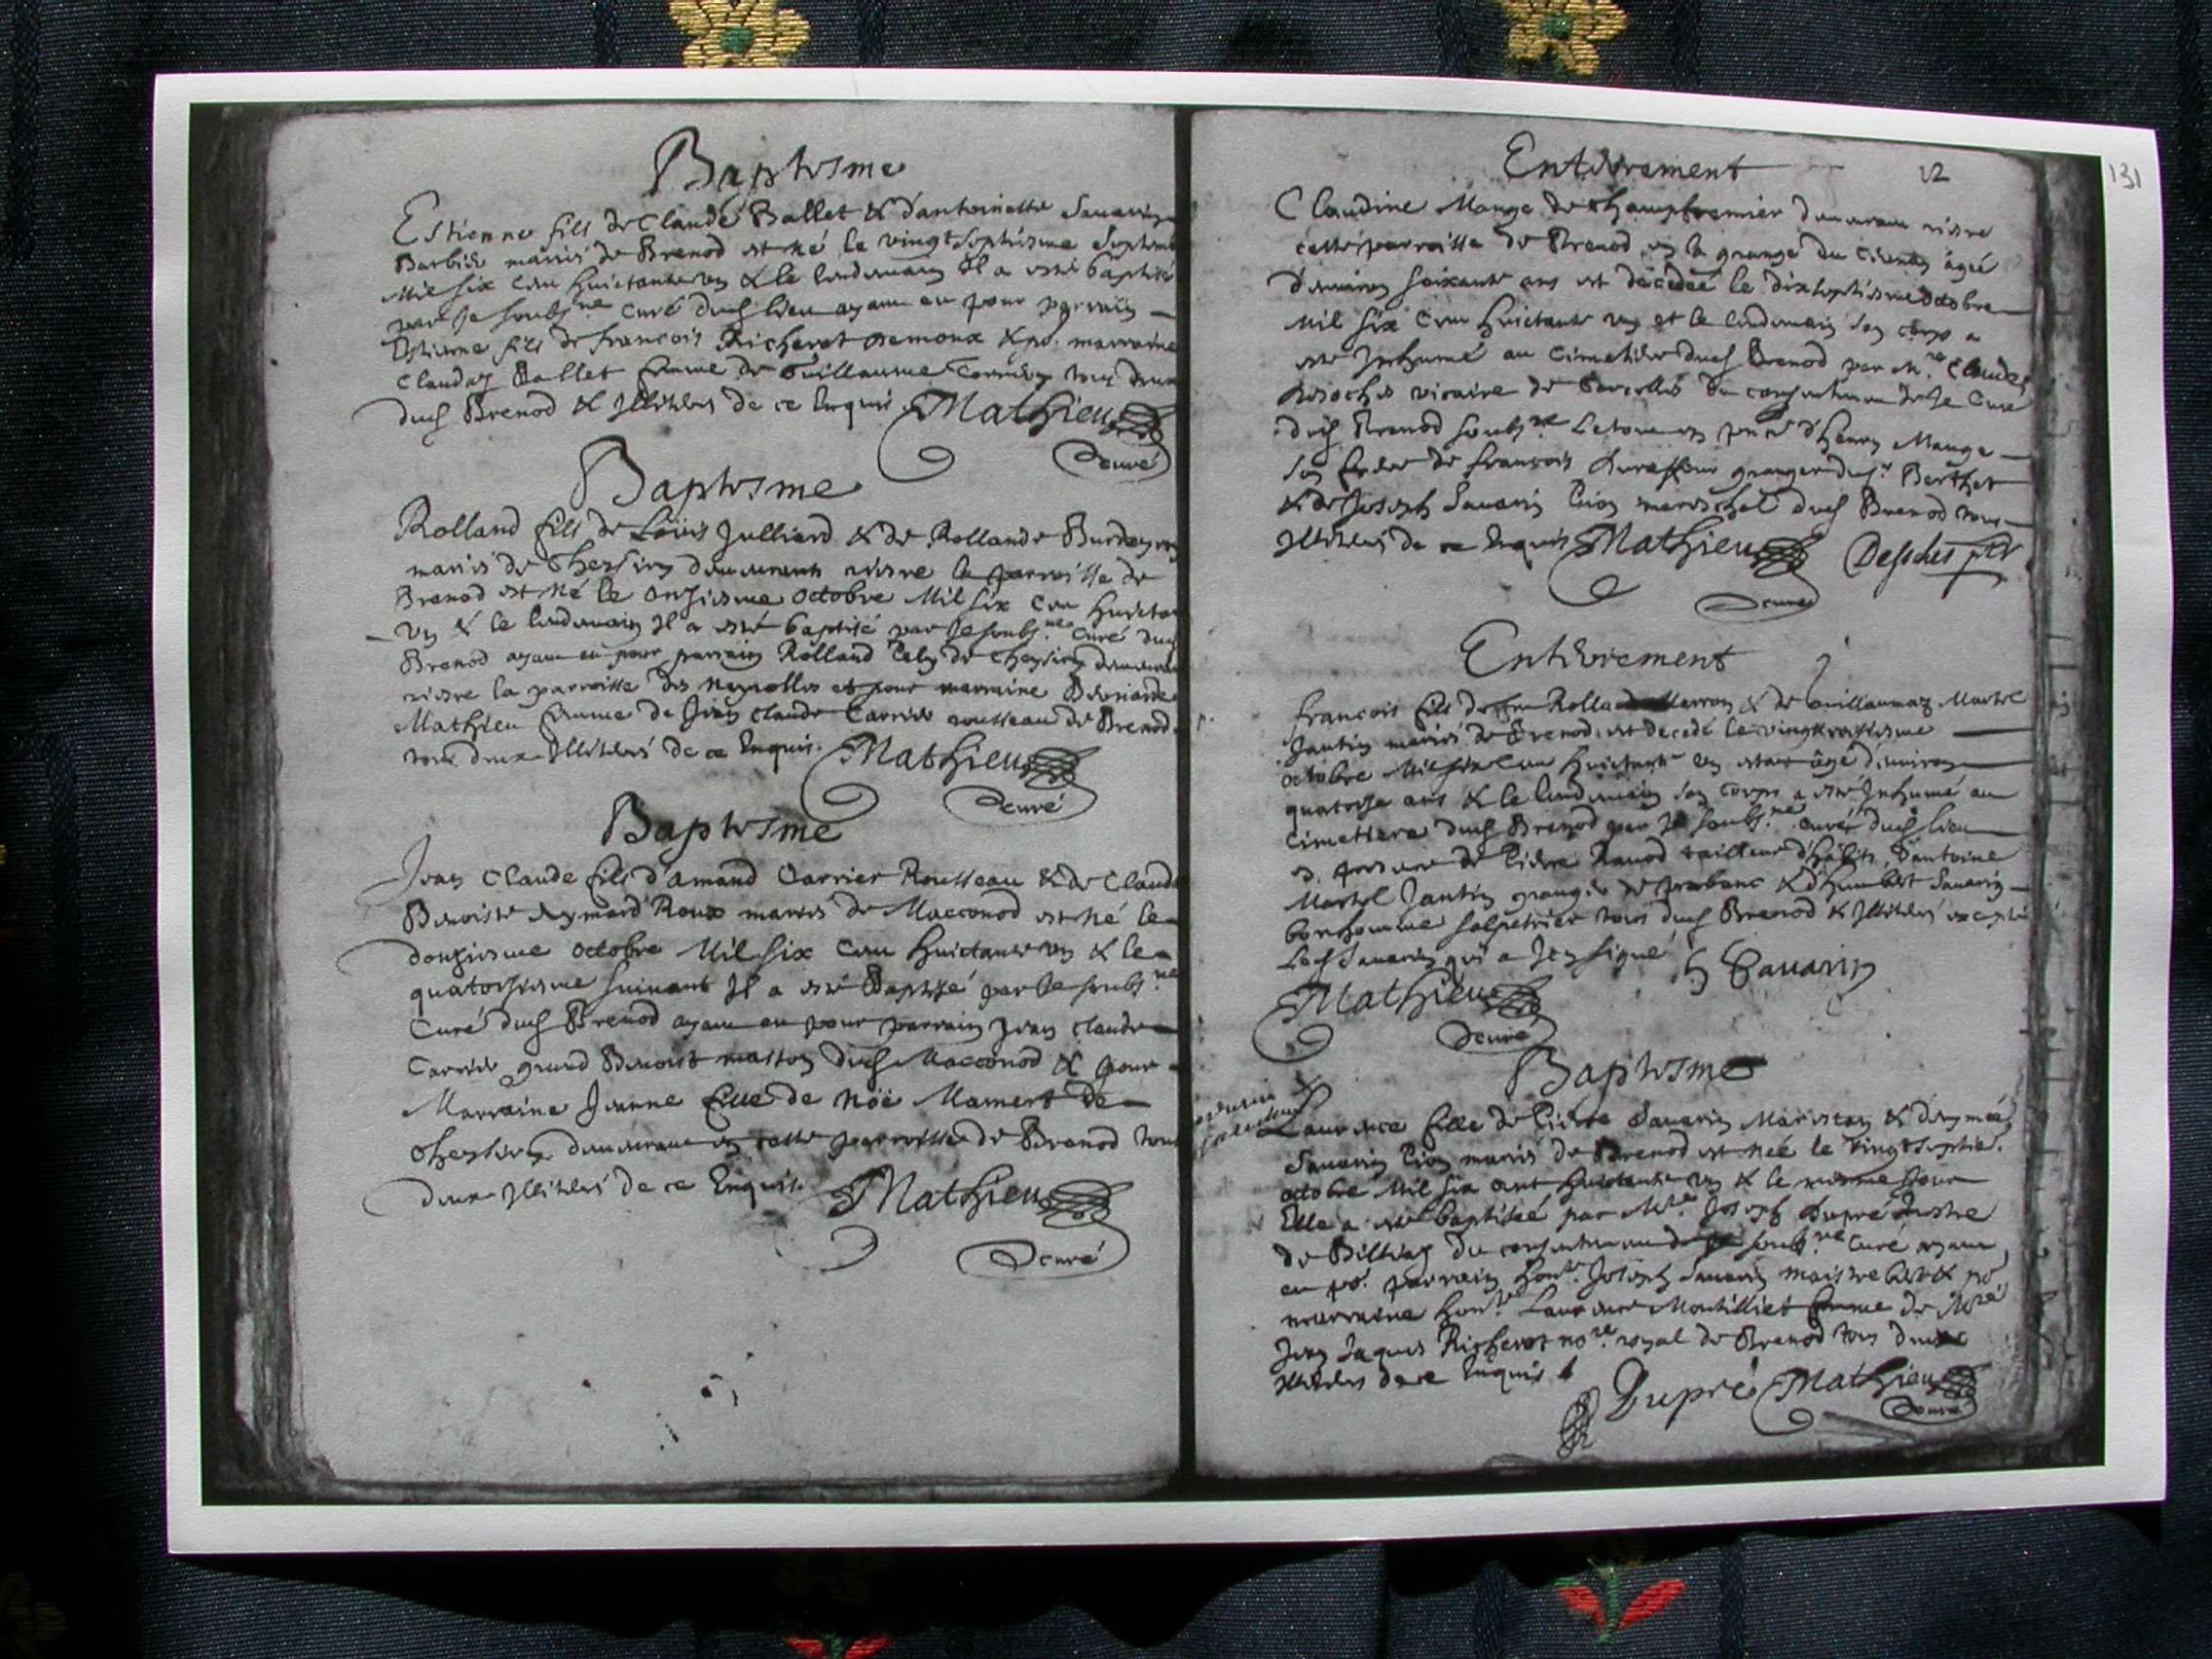 Baptesme
Estienne fils de Claude Ballet & d'antoinette Savarin
Barbier mariés de Brenod est né le vingtseptiesme septemb
Mil six cent huictante un & le lendemain Il a esté baptisé
par Je soubs.ne Curé dud lieu ayant eu pour parrain
Estienne fils de francois Richerot & po. marraine
Clauday Ballet femme de Guillaume tous deux
dud Brenod & Illiterés de ce Enquis Mathieu
curé
Baptesme
Rolland fils de Louis Julliard & de Rollande
mariés de Cheysieu demeurants riere la parroisse de
Brenod est né le onziesme octobre Mil six cen huictan
un & le lendemain Il a esté baptisé par Je soubs.ne Curé dud
Brenod ayant eu pour parrain Rolland de
riere la parroisse des Neyrolles et pour marraine
Mathieu femme de Jean Claude Carrier rousseau de Brenod
tous deux Illiterés de ce Enquis. Mathieu
curé
Baptesme
Jean Claude fils d'amand Carrier Rousseau & de Claud
Benoiste Aymard Roux mariés de Macconod est né le
douziesme octobre Mil six cent huictante un & le
quatorziesme suivant Il a esté Baptisé par Je soubs.ne
Curé dud Brenod ayant eu pour parrain Jean Claude
Carrier grand Benoist masson dud Macconod & pour
Marraine Jeanne fille de Noë Mamert de
demeurant en cette parroisse de Brenod tous
deux Illiterés de ce Enquis. Mathieu
curé
Enterrement 12
131
Claudine Mange de Champfromier demeurant riere
cette parroisse de Brenod en la grange du agée
d'environ soixante ans est decedeé le dixseptiesme octobre
Mil six cent huictante un et le lendemain son corps a
esté Inhumé au cimetiere dud Brenod par M.re Claude
vicaire de Corcelles du consentement de Je Curé
dud Brenod soubs.ne Le tout en d'Henry Mange
son frere de francois granger du s.r Berthet
& de Joseph Savarin Lion mareschal dud Brenod tous
Illiterés de ce Enquis Mathieu
curé
Enterrement
francois fils de feu Rolland & de Guillaumaz Martel
Jantin mariés de Brenod est decedé le
octobre Mil six cen huictante un estant âgé d'environ
quatorze ans & le lendemain son corps a esté Inhumé au
Cimetiere dud Brenod par Je soubs.ne curé dud lieu
de Pierre Ravod tailleur d'habits, d'antoine
Martel Jantin granger de & d'humbert Savarin
bonhomme salpetrier tous dud Brenod & Illiterés excepté
Led Savarin qui a Icy signé h Savarin
Mathieu
curé
Baptesme
Laurence fille de Pierre Savarin & d'aymeé
Savarin Lion mariés de Brenod est neé le vingtseptie.
octobre Mil six cent huictante un & le mesme Jour
Elle a esté baptiseé par M.re Joseph Dupré
de Billiaz du consentement de Je soub.ne Curé ayant
eu po.r parrain hon.te Joseph Savarin & po.
marraine hon.te Laurence Montilliet femme de M.re
Jean Jaques Richerot no.re royal de Brenod tous deux
Illiterés de ce Enquis
Dupré Mathieu
curé